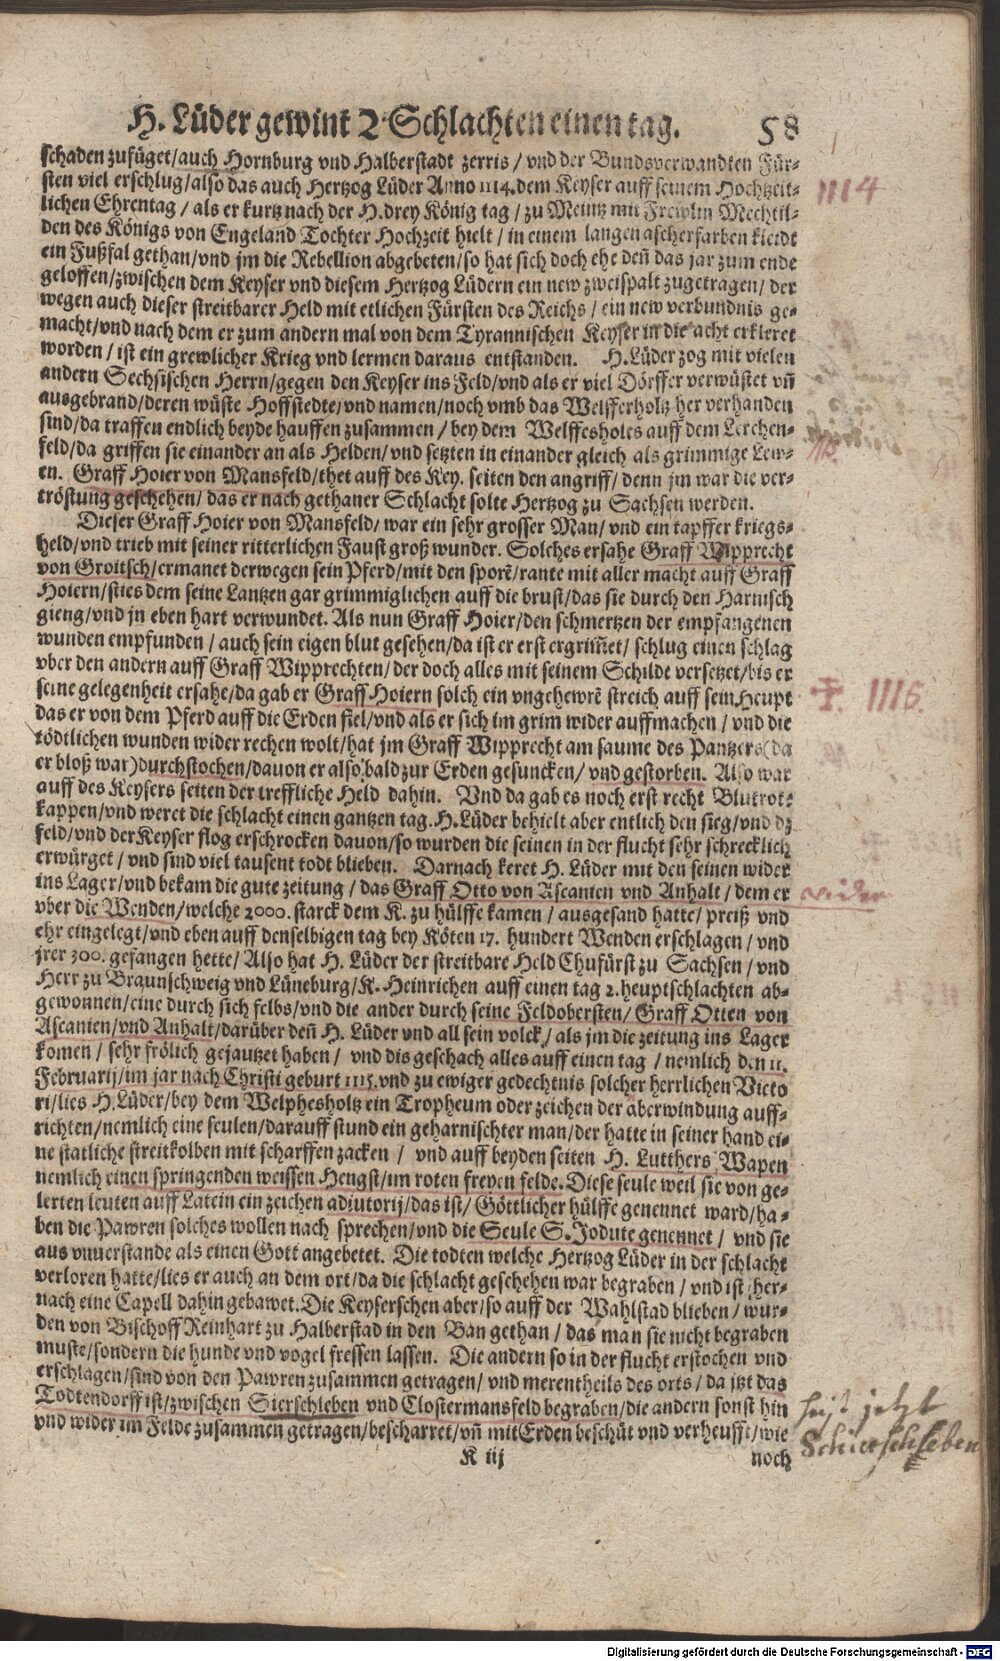 H. Lüder gewint 2 Schlachten einen tag. 58
schaden zufüget/auch Hornburg vnd Halberstadt zerris/vnd der Bundsverwandten Für-
sten viel erschlug/also das auch Hertzog Lüder Anno 1114. dem Keyser auff seinem Hochtzeit-
1114
lichen Ehrentag/als er kurtz nach der H. drey König tag/zu Meintz mit Frewlin Mechtil-
den des Königs von Engeland Tochter Hochzeit hielt/in einem langen ascherfarben kleidt
ein Fußfal gethan/vnd jm die Rebellion abgebeten/so hat sich doch ehe deñ das jar zum ende
geloffen/zwischen dem Keyser vnd diesem Hertzog Lüdern ein new zweispalt zugetragen/der
wegen auch dieser streitbarer Held mit etlichen Fürsten des Reichs/ein new verbundnis ge-
macht/vnd nach dem er zum andern mal von dem Tyrannischen Keyser in die acht erkleret
worden/ist ein grewlicher Krieg vnd lermen daraus entstanden. H. Lüder zog mit vielen
andern Sechsischen Herrn/gegen den Keyser ins Feld/vnd als er viel Dörffer verwüstet vñ
ausgebrand/deren wüste Hoffstedte/vnd namen/noch vmb das Welfferholtz her verhanden
sind/da traffen endlich beyde hauffen zusammen/bey dem Welffesholes auff dem Lerchen-
feld/da griffen sie einander an als Helden/vnd setzten in einander gleich als grimmige Lew-
1115.
en. Graff Hoier von Mansfeld/thet auff des Key. seiten den angriff/denn jm war die ver-
tröstung geschehen/das er nach gethaner Schlacht solte Hertzog zu Sachsen werden.
Dieser Graff Hoier von Mansfeld/war ein sehr grosser Man/vnd ein tapffer kriegs-
held/vnd trieb mit seiner ritterlichen Faust groß wunder. Solches ersahe Graff Wipprecht
von Groitsch/ermanet derwegen sein Pferd/mit den sporẽ/rante mit aller macht auff Graff
Hoiern/sties dem seine Lantzen gar grimmiglichen auff die brust/das sie durch den Harnisch
gieng/vnd jn eben hart verwundet. Als nun Graff Hoier/den schmertzen der empfangenen
wunden empfunden/auch sein eigen blut gesehen/da ist er erst ergrim̃et/schlug einen schlag
vber den andern auff Graff Wipprechten/der doch alles mit seinem Schilde versetzet/bis er
seine gelegenheit ersahe/da gab er Graff Hoiern solch ein vngehewrẽ streich auff sein Heupt
1116.
das er von dem Pferd auff die Erden fiel/vnd als er sich im grim wider auffmachen/vnd die
tödtlichen wunden wider rechen wolt/hat jm Graff Wipprecht am saume des Pantzers(da
er bloß war)durchstochen/davon er also bald zur Erden gesuncken/vnd gestorben. Also war
auff des Keysers seiten der treffliche Held dahin. Vnd da gab es noch erst recht Blutrot-
kappen/vnd weret die schlacht einen gantzen tag. H. Lüder behielt aber entlich den sieg/vnd dz
feld/vnd der Keyser flog erschrocken davon/so wurden die seinen in der flucht sehr schrecklich
erwürget/vnd sind viel tausent todt blieben. Darnach keret H. Lüder mit den seinen wider
ins Lager/vnd bekam die gute zeitung/das Graff Otto von Ascanien vnd Anhalt/dem er
wider
vber die Wenden/welche 2000. starck dem K. zu hülffe kamen/ausgesand hatte/preiß vnd
ehr eingelegt/vnd eben auff denselbigen tag bey Köten 17. hundert Wenden erschlagen/vnd
jrer 300. gefangen hette/Also hat H. Lüder der streitbare Held Chufürst zu Sachsen/vnd
Herr zu Braunschweig vnd Lüneburg/K. Heinrichen auff einen tag 2. heuptschlachten ab-
gewonnen/eine durch sich selbs/vnd die ander durch seine Feldobersten/Graff Otten von
Ascanien/vnd Anhalt/darüber deñ H. Lüder vnd all sein volck/als jm die zeitung ins Lager
komen/sehr frölich gejautzet haben/vnd dis geschach alles auff einen tag/nemlich den 11.
Februarij/im jar nach Christi geburt 1115. vnd zu ewiger gedechtnis solcher herrlichen Victo
ri/lies H. Lüder/bey dem Welphesholtz ein Tropheum oder zeichen der überwindung auff-
richten/nemlich eine seulen/darauff stund ein geharnischter man/der hatte in seiner hand ei-
ne statliche streitkolben mit scharffen zacken/vnd auff beyden seiten H. Lutthers Wapen
nemlich einen springenden weissen Hengst/im roten freyen felde. Diese seule weil sie von ge-
lerten leuten auff Latein ein zeichen adiutorij/das ist/Göttlicher hülffe genennet ward/ha-
ben die Pawren solches wollen nach sprechen/vnd die Seule S. Jodute genennet/vnd sie
aus vnuerstande als einen Gott angebetet. Die todten welche Hertzog Lüder in der schlacht
verloren hatte/lies er auch an dem ort/da die schlacht geschehen war begraben/vnd ist her-
nach eine Capell dahin gebawet. Die Keyserschen aber/so auff der Wahlstad blieben/wur-
den von Bischoff Reinhart zu Halberstad in den Ban gethan/das man sie nicht begraben
muste/sondern die hunde vnd vogel fressen lassen. Die andern so in der flucht erstochen vnd
erschlagen/sind von den Pawren zusammen getragen/vnd merentheils des orts/da jtzt das
Todtendorff ist/zwischen Sierschleben vnd Clostermansfeld begraben/die andern sonst hin
heist jetzt
vnd wider im Felde zusammen getragen/bescharret/vñ mit Erden beschüt vnd verheufft/wie
Schierschleben
K iij
noch
Digitalisierung gefördert durch die Deutsche Forschungsgemeinschaft - DFG